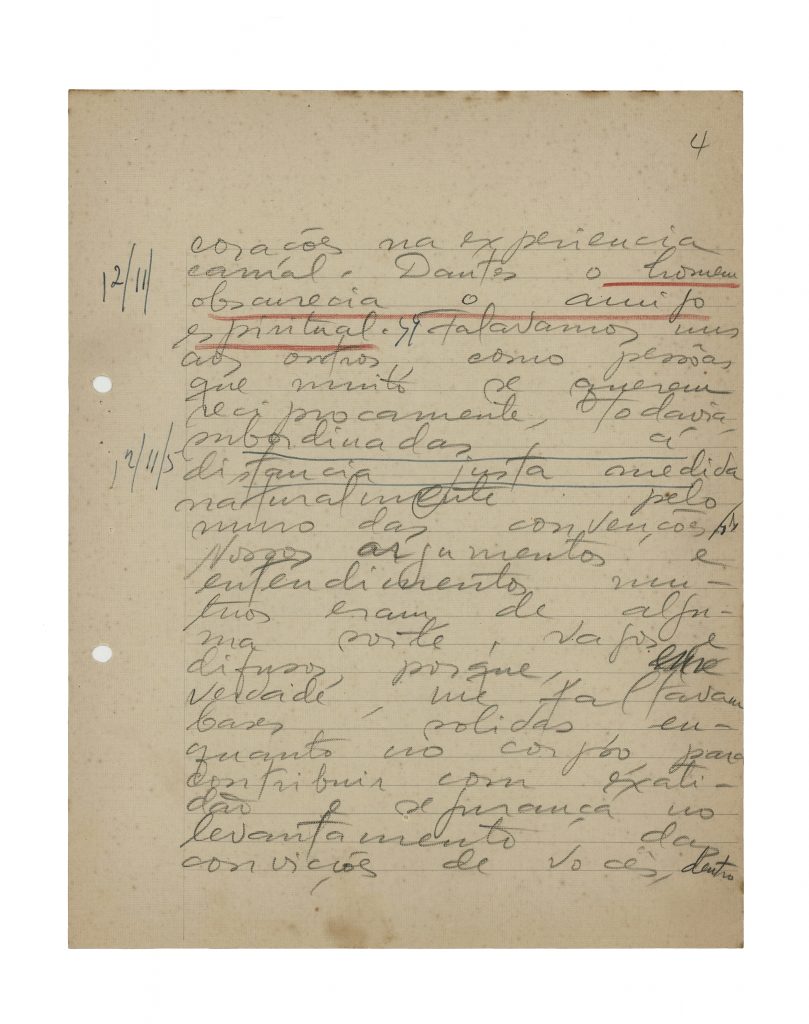 4
corações na experiencia
12/11
carnal. Dantes o homem
obscurecia o amigo
espiritual. Falavamos uns
aos outros, como pessôas
que muito se querem
reciprocamente, todavia,
subordinadas á
12/11/5
distancia justa medida
naturalmente pelo
muro das convenções
Nossos argumentos e
entendimentos mu-
tuos eram, de algu-
ma sorte, vagos e
difusos, porque, em
verdade, me faltavam
bases solidas en-
quanto no corpo, para
contribuir com exati-
dão e segurança no
levantamento das
convicções de vocês, dentro